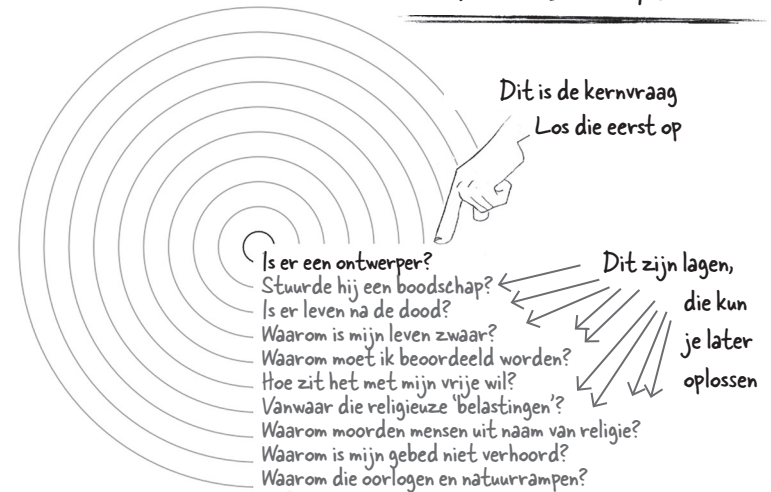 Dit is de kernvraag
Los die eerst op
Is er een ontwerper?
Stuurde hij een boodschap?
Is er leven na de dood?
Waarom is mijn leven zwaar?
Waarom moet ik beoordeeld worden?
Hoe zit het met mijn vrije wil?
Vanwaar die religieuze 'belastingen'?
Waarom moorden mensen uit naam van religie?
Waarom is mijn gebed niet verhoord?
Waarom die oorlogen en natuurrampen?
Dit zijn lagen,
die kun
je later
oplossen